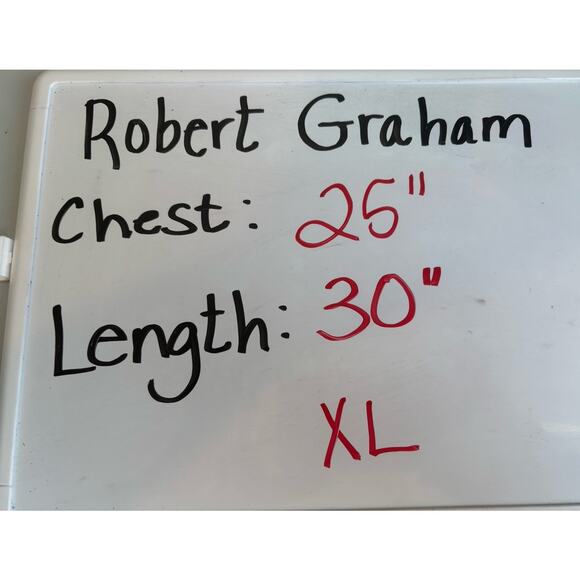 Robert Graham
Chest: 25"
Length: 30"
XL